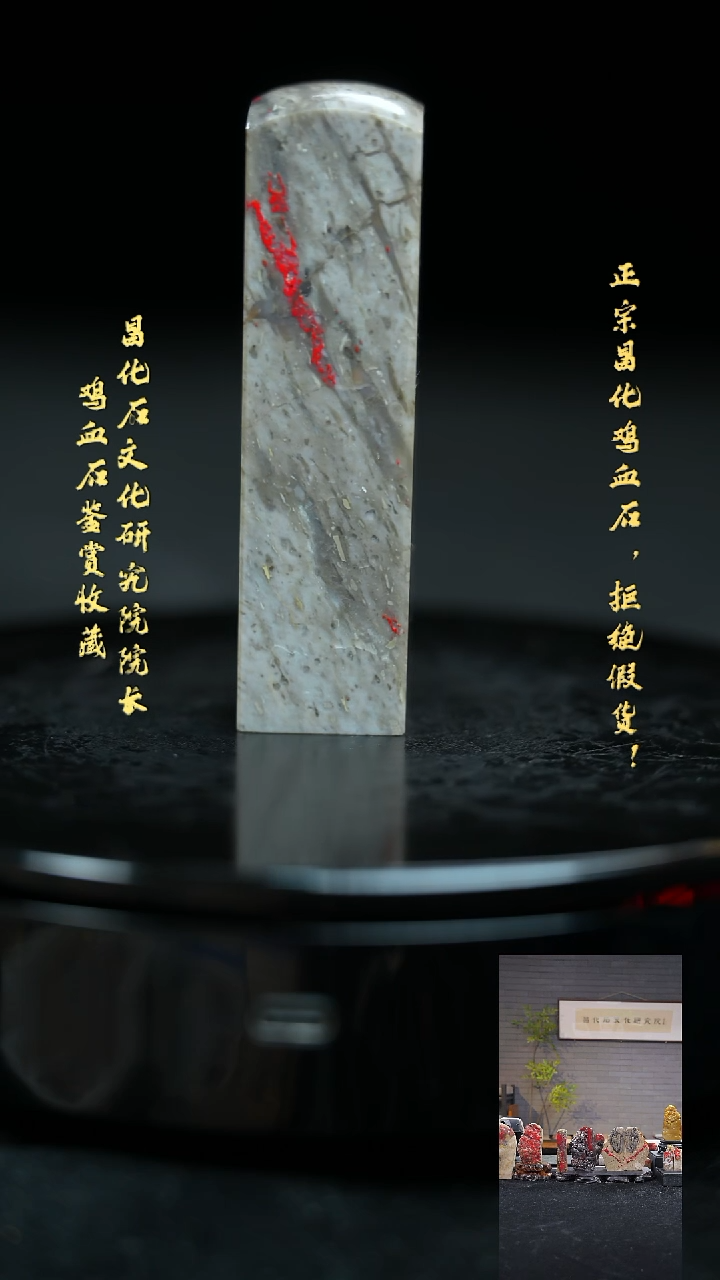 正宗昌化鸡血石，拒绝假货！
昌化石文化研究院院长
鸡血石鉴赏收藏